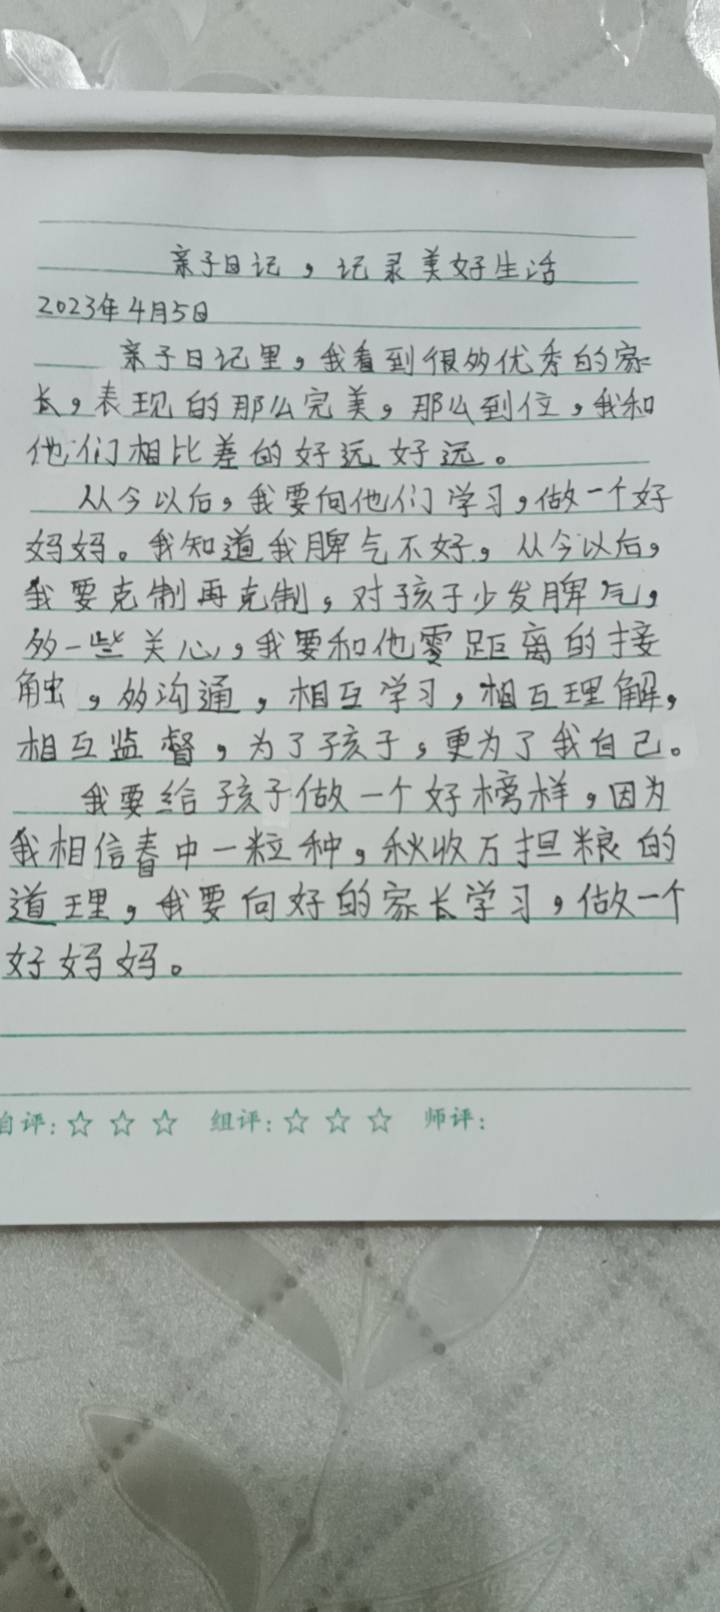 亲子日记，记录美好生活
2023年4月5日
亲子日记里，我看到很多优秀的家
长，表现的那么完美，那么到位，我和
他们相比差的好远好远。
从今以后，我要向他们学习，做一个好
妈妈。我知道我脾气不好，从今以后，
我要克制再克制，对孩子少发脾气，
多一些关心，我要和他零距离的接
触，多沟通，相互学习，相互理解，
相互监督，为了孩子，更为了我自己。
我要给孩子做一个好榜样，因为
我相信春中一粒种，秋收万担粮的
道理，我要向好的家长学习，做一个
好妈妈。
自评：☆ ☆ ☆ 组评：☆ ☆ ☆ 师评：